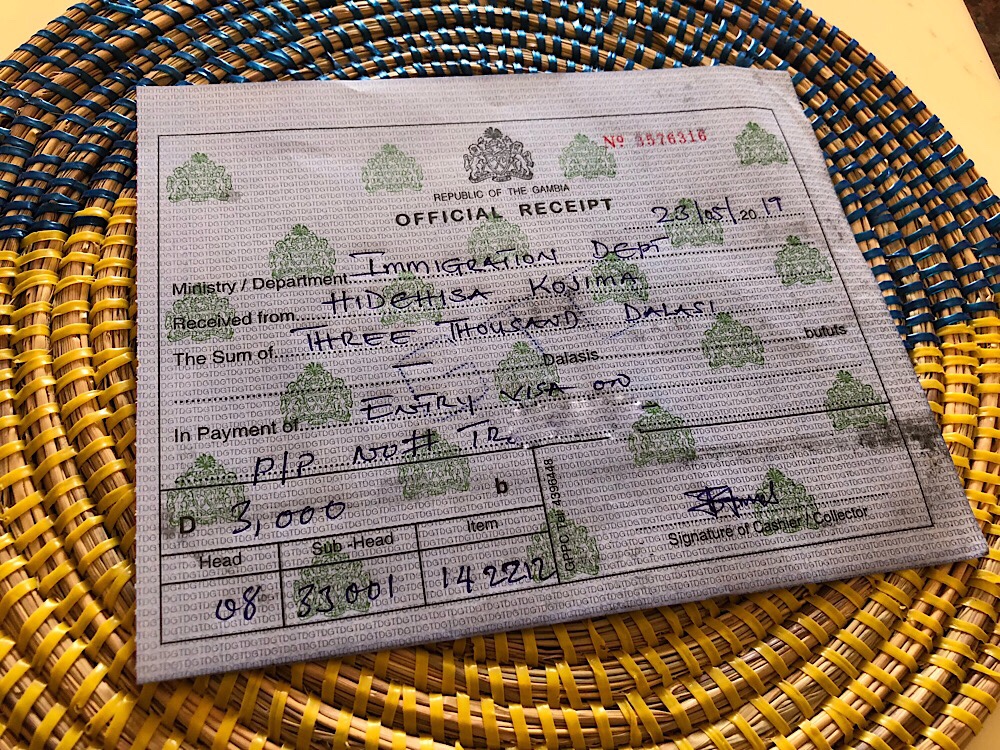 Nº 3576316
REPUBLIC OF THE GAMBIA
OFFICIAL RECEIPT
23/05/2019
Ministry / Department IMMIGRATION DEPT
Received from HIDEHISA KOJIMA
The Sum of THREE THOUSAND DALASI
Dalasis bututs
In Payment of ENTRY VISA ON
P/P NO# TR
D 3,000 b
Head Sub-Head Item
08 33001 142212
GPPC
Signature of Cashier / Collector